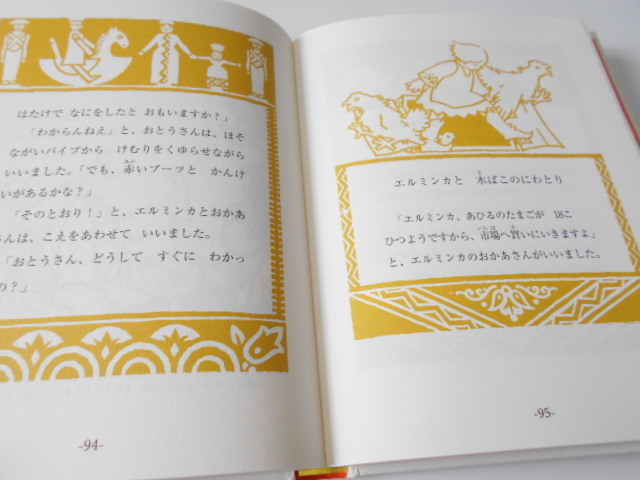 はたけで なにをしたと おもいますか？」
「わからんねえ」と、おとうさんは、ほそ
ながいパイプから けむりをくゆらせながら
いいました。「でも、赤いブーツと かんけ
いがあるかな？」
「そのとおり！」と、エルミンカとおかあ
さんは、こえをあわせて いいました。
「おとうさん、どうして すぐに わかっ
の？」
-94-
エルミンカと 木ばこのにわとり
「エルミンカ、あひるのたまごが 18こ
ひつようですから、市場へ買いにいきますよ」
と、エルミンカのおかあさんがいいました。
-95-